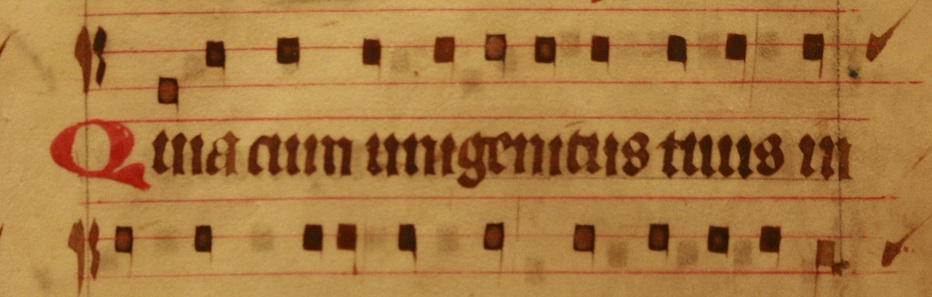 Quia cum unigenitus tuus in